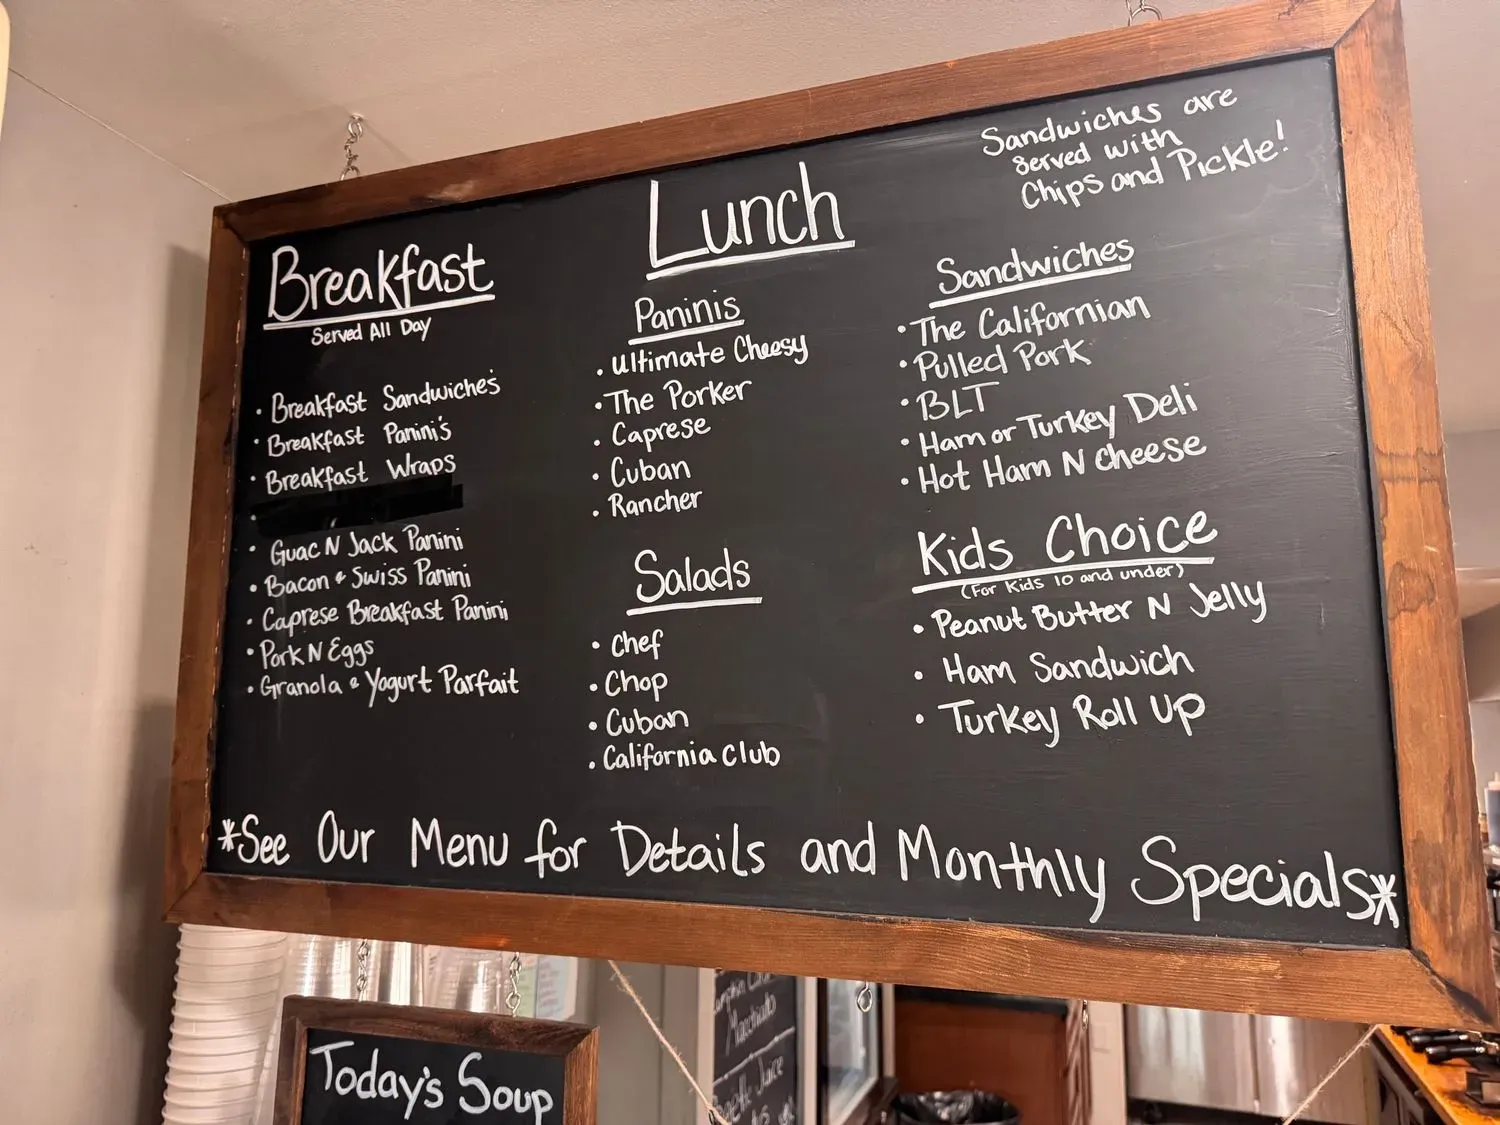 Breakfast
Served All Day
• Breakfast Sandwiches
• Breakfast Panini's
• Breakfast Wraps
•
• Guac N Jack Panini
• Bacon & Swiss Panini
• Caprese Breakfast Panini
• Pork N Eggs
• Granola & Yogurt Parfait
Lunch
Paninis
• Ultimate Cheesy
• The Porker
• Caprese
• Cuban
• Rancher
Salads
• Chef
• Chop
• Cuban
• California Club
Sandwiches are
served with
Chips and Pickle!
Sandwiches
• The Californian
• Pulled Pork
• BLT
• Ham or Turkey Deli
• Hot Ham N Cheese
Kids Choice
(For Kids 10 and under)
• Peanut Butter N Jelly
• Ham Sandwich
• Turkey Roll Up
*See Our Menu for Details and Monthly Specials*
Today's Soup
Macchiato
Juice